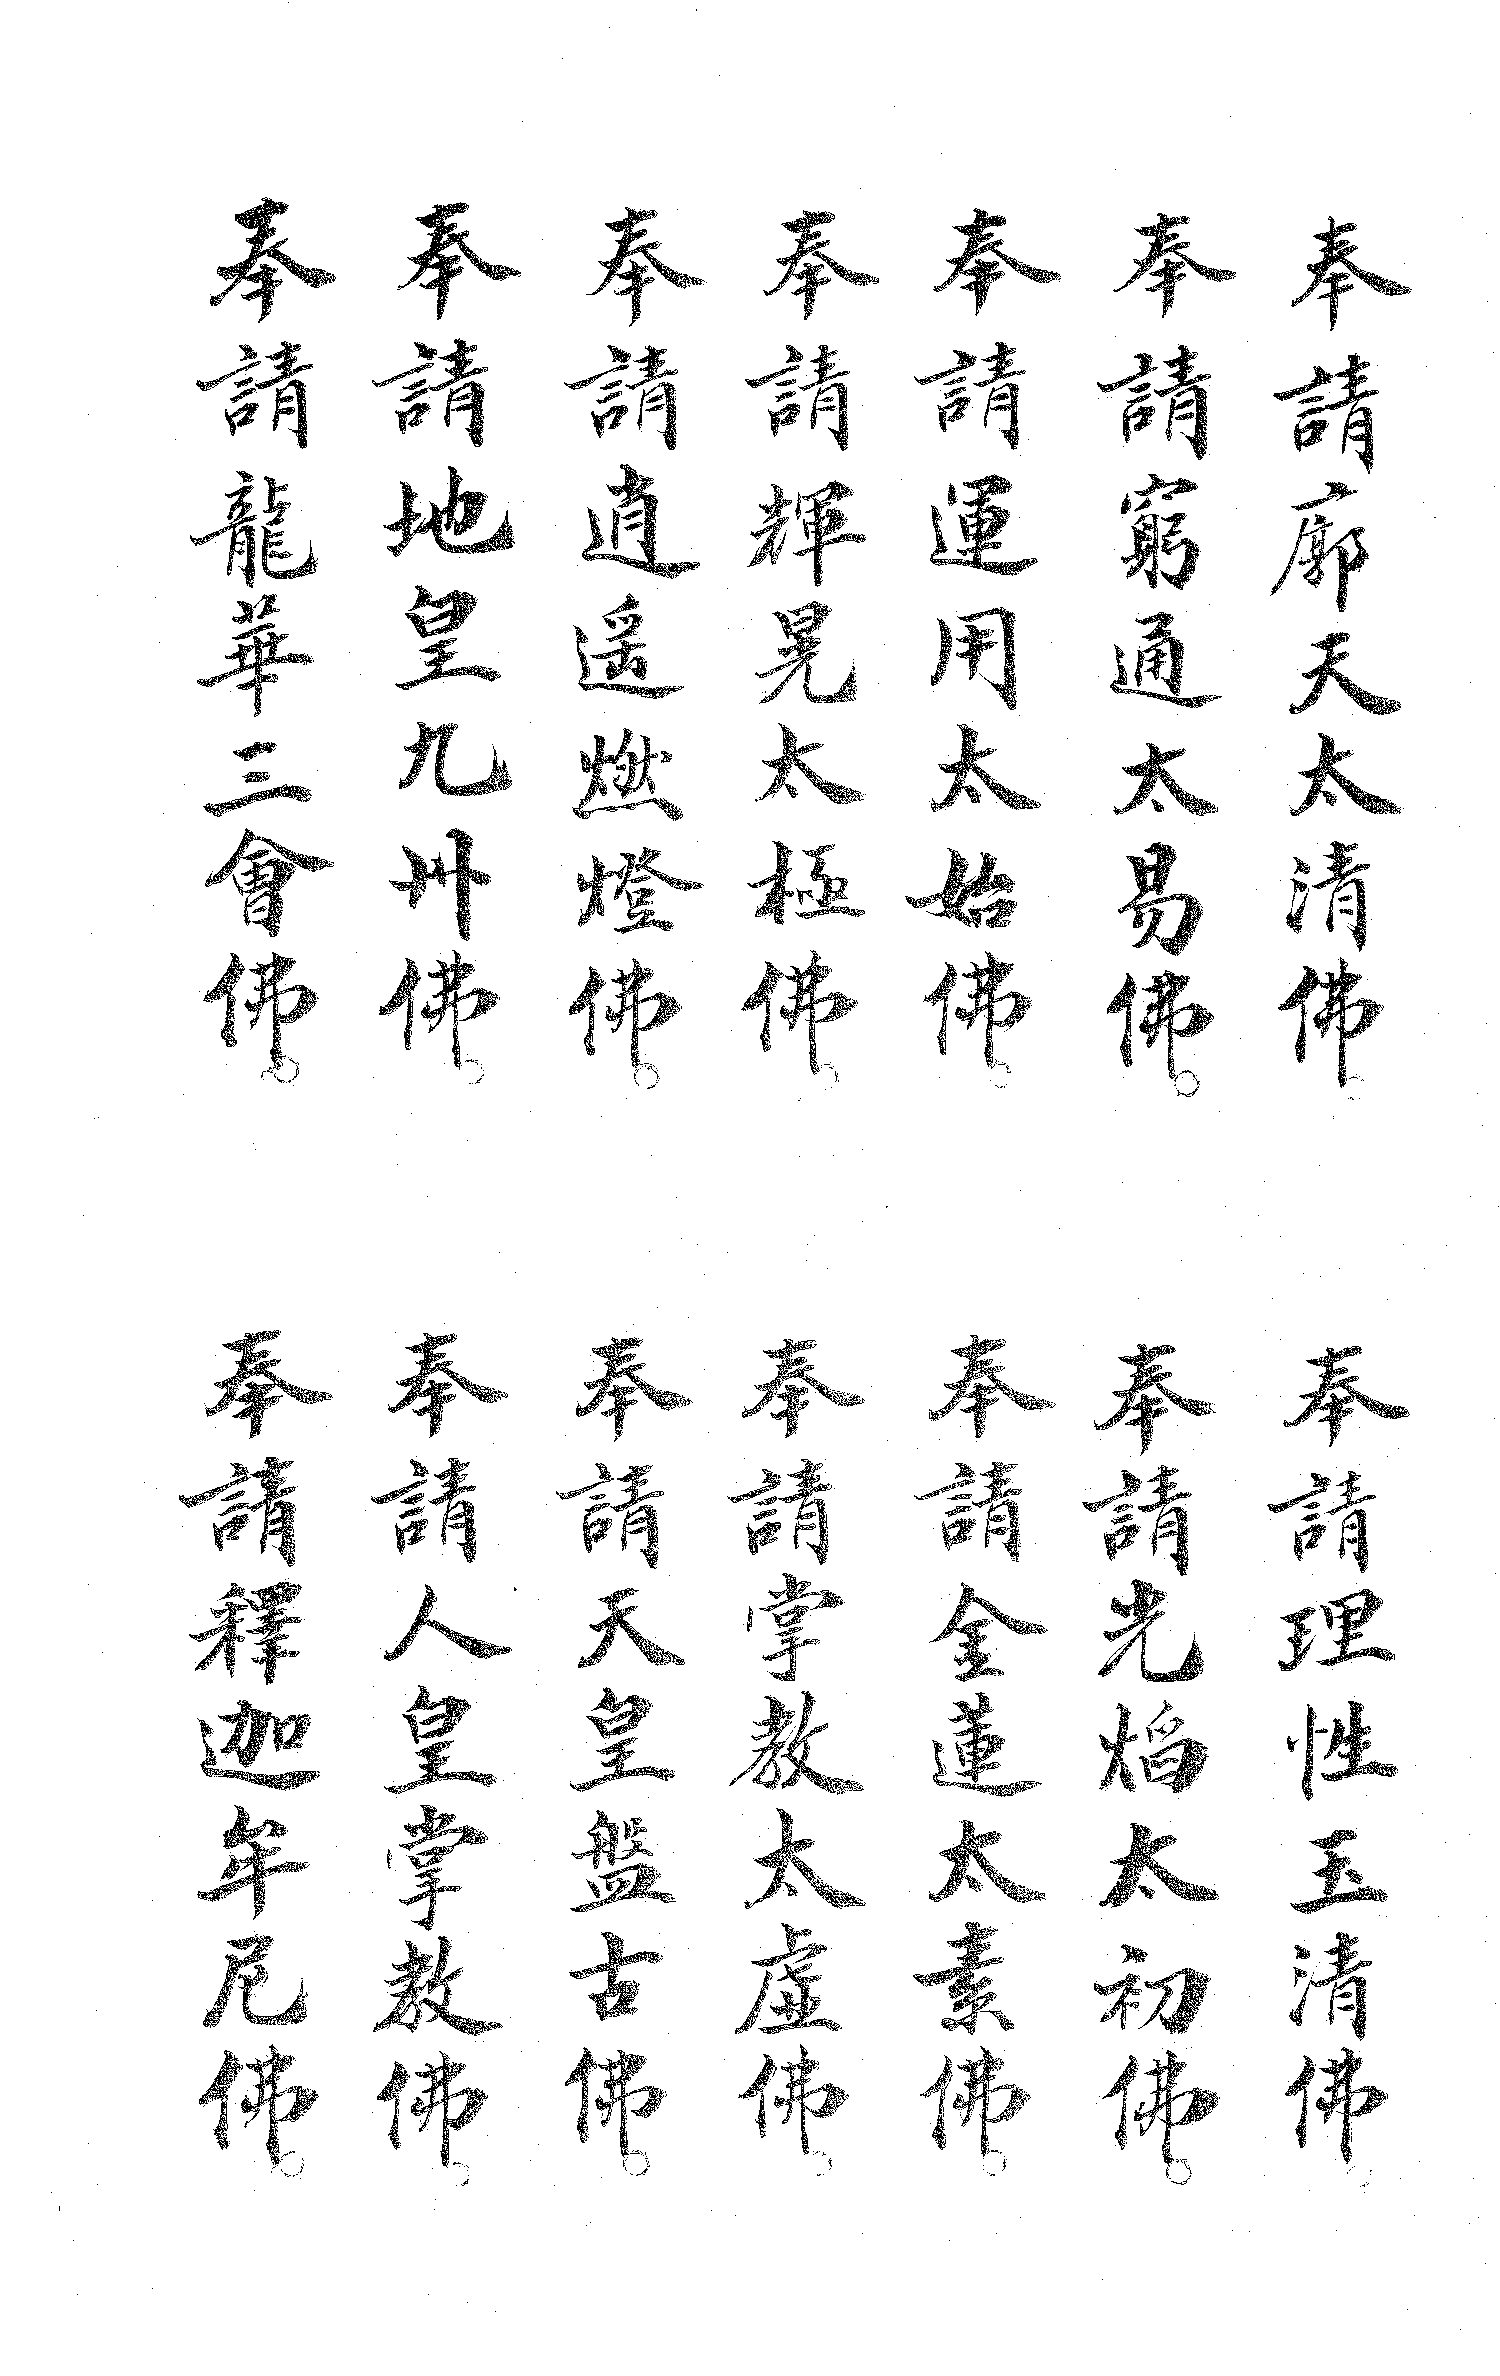 奉請廓天太清佛。
奉請理性玉清佛。
奉請窮通太易佛。
奉請光焰太初佛。
奉請運用太始佛。
奉請金蓮太素佛。
奉請輝晃太極佛。
奉請掌教太虛佛。
奉請逍遙燃燈佛。
奉請天皇盤古佛。
奉請地皇九卅佛。
奉請人皇掌教佛。
奉請龍華三會佛。
奉請釋迦牟尼佛。